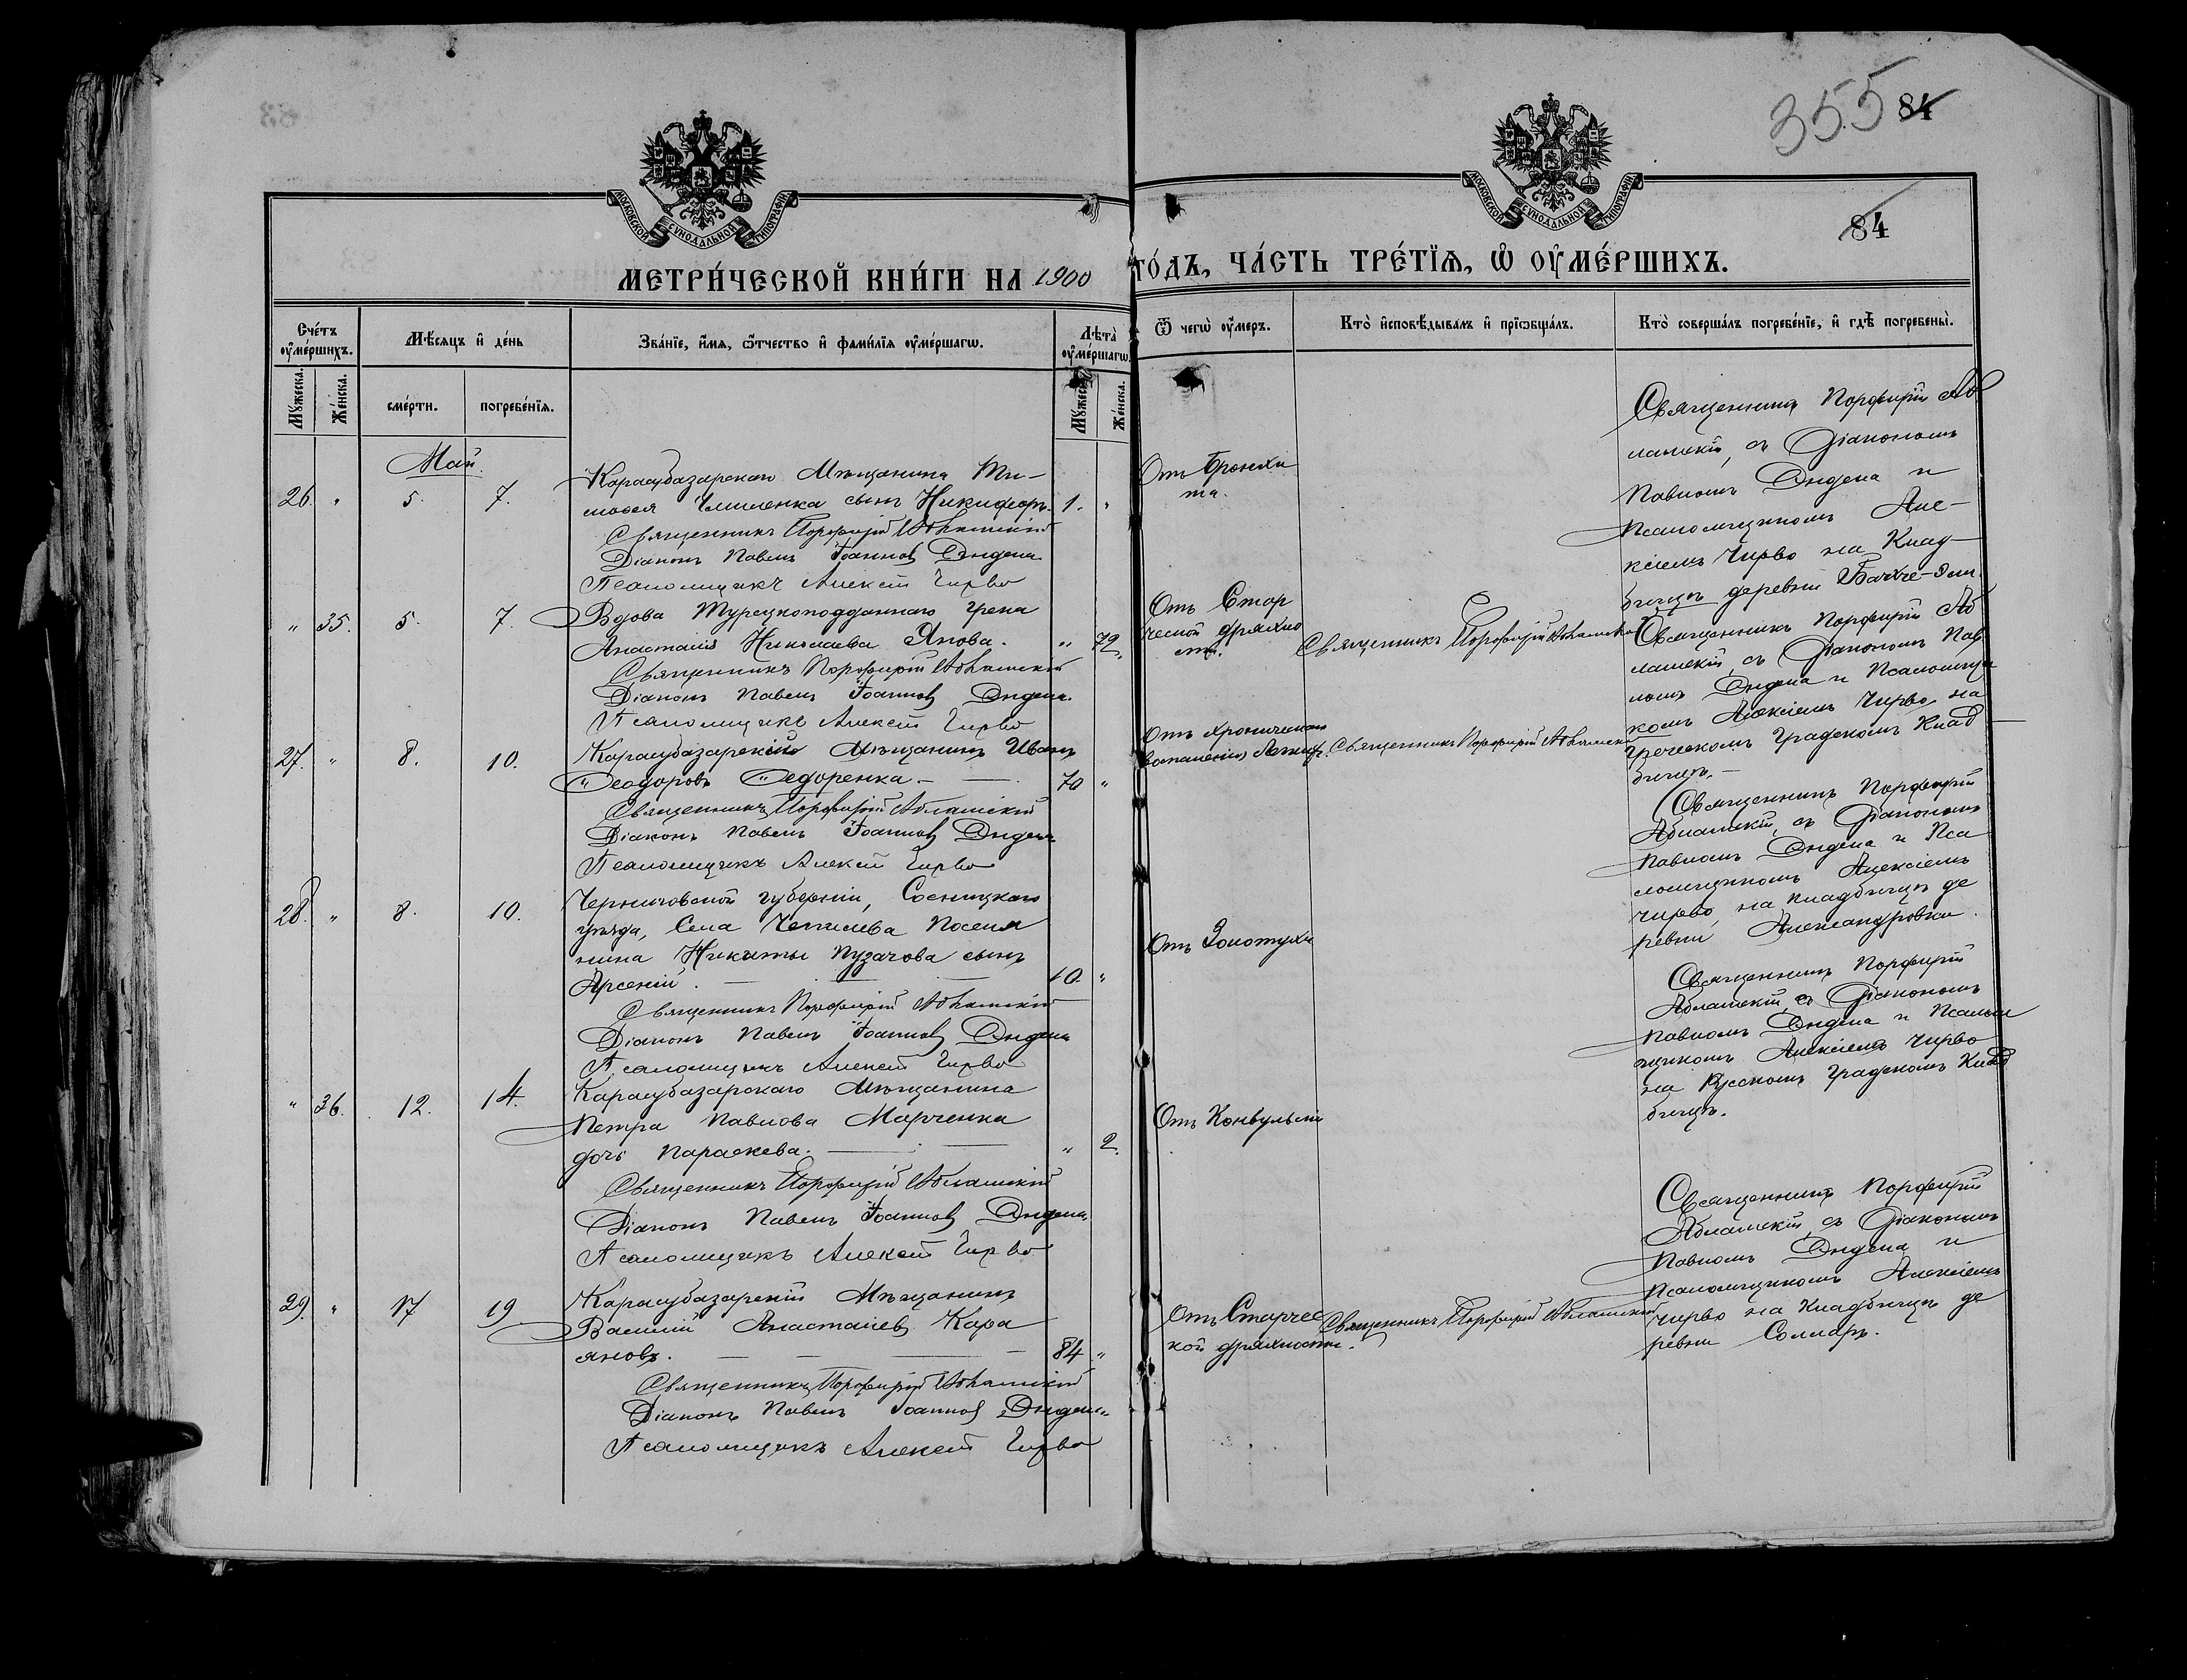 355
84
МОСКОВСКОЙ СУНОДАЛЬНОЙ ТИПОГРАФІИ
МОСКОВСКОЙ СУНОДАЛЬНОЙ ТИПОГРАФІИ
84
МЕТРИ́ЧЕСКОЙ КНИ́ГИ НА 1900 ГО́ДЪ, ЧА́СТЬ ТРЕ́ТІѦ, Ѡ ОУМЕ́РШИХЪ.
Сче́тъ оумершихъ.
Мѣсяцъ и день
Зва́ніе, и́мя, о́тчество и фами́лія оуме́ршагѡ.
Лѣта оумершагѡ.
Ѿ чегѡ оумеръ.
Кто исповѣдывалъ и пріѡбщалъ.
Кто совершалъ погребеніе, и гдѣ погребены.
Мужеска.
Женска.
смерти.
погребенія.
Мужеска.
Женска.
Май.
26. " 5. 7.
Карасубазарскаго Мѣщанина Ти-
моѳея сынъ Никифоръ. 1. "
Священникъ Порфирій Аблашскій
Діаконъ Павелъ Іоанновъ Дидена
Псаломщикъ Алексѣй Чирво
Отъ Бронхи
та.
Священникъ Порфирій Аб
лашскій, съ Діакономъ
Павломъ Дидена и
Псаломщикомъ Але-
ксіемъ Чирво на Клад-
бищѣ деревни Бахче-Эли
" 35. 5. 7.
Вдова Турецкоподданнаго Грека
Анастасія Николаева Янова. " 72.
Священникъ Порфирій Аблашскій
Діаконъ Павелъ Іоанновъ Дидена.
Псаломщикъ Алексѣй Чирво
Отъ Стар
ческой дряхло
сти.
Священникъ Порфирій Аблашскій
Священникъ Порфирій Аб
лашскій, съ Діакономъ Пав
ломъ Дидена и Псаломщи
комъ Алексіемъ Чирво, на
Греческомъ Градскомъ Клад
бищѣ.
27. " 8. 10.
Карасубазарскій Мѣщанинъ Иванъ
Ѳеодоровъ Ѳедоренка. 70 "
Священникъ Порфирій Аблашскій
Діаконъ Павелъ Іоанновъ Дидена
Псаломщикъ Алексѣй Чирво
Отъ Хроническаго
воспаленія Легкихъ.
Священникъ Порфирій Аблашскій
Священникъ Порфирій
Аблашскій, съ Діакономъ
Павломъ Дидена и Пса
ломщикомъ Алексіемъ
Чирво, на кладбищѣ де
ревни Александровки.
28. " 8. 10.
Черниговской губерніи, Сосницкаго
уѣзда, Села Поселя
нина Никиты Пузачова сынъ
Арсеній. 10. "
Священникъ Порфирій Аблашскій
Діаконъ Павелъ Іоанновъ Дидена
Псаломщикъ Алексѣй Чирво
Отъ Золотухи
Священникъ Порфирій
Аблашскій, съ Діакономъ
Павломъ Дидена и Псалом
щикомъ Алексіемъ Чирво
на Русскомъ Градскомъ Клад
бищѣ.
" 36. 12. 14.
Карасубазарскаго Мѣщанина
Петра Павлова Марченка
дочь Параскева. " 2.
Священникъ Порфирій Аблашскій
Діаконъ Павелъ Іоанновъ Дидена
Псаломщикъ Алексѣй Чирво
Отъ Конвульсіи
Священникъ Порфирій
Аблашскій, съ Діакономъ
Павломъ Дидена и
Псаломщикомъ Алексіемъ
Чирво на Кладбищѣ де
ревни
29. " 17 19
Карасубазарскій Мѣщанинъ
Василій Анастасіев Кара
яновъ. 84 "
Священникъ Порфирій Аблашскій
Діаконъ Павелъ Іоанновъ Дидена
Псаломщикъ Алексѣй Чирво
Отъ Старчес
кой дряхлости.
Священникъ Порфирій Аблашскій